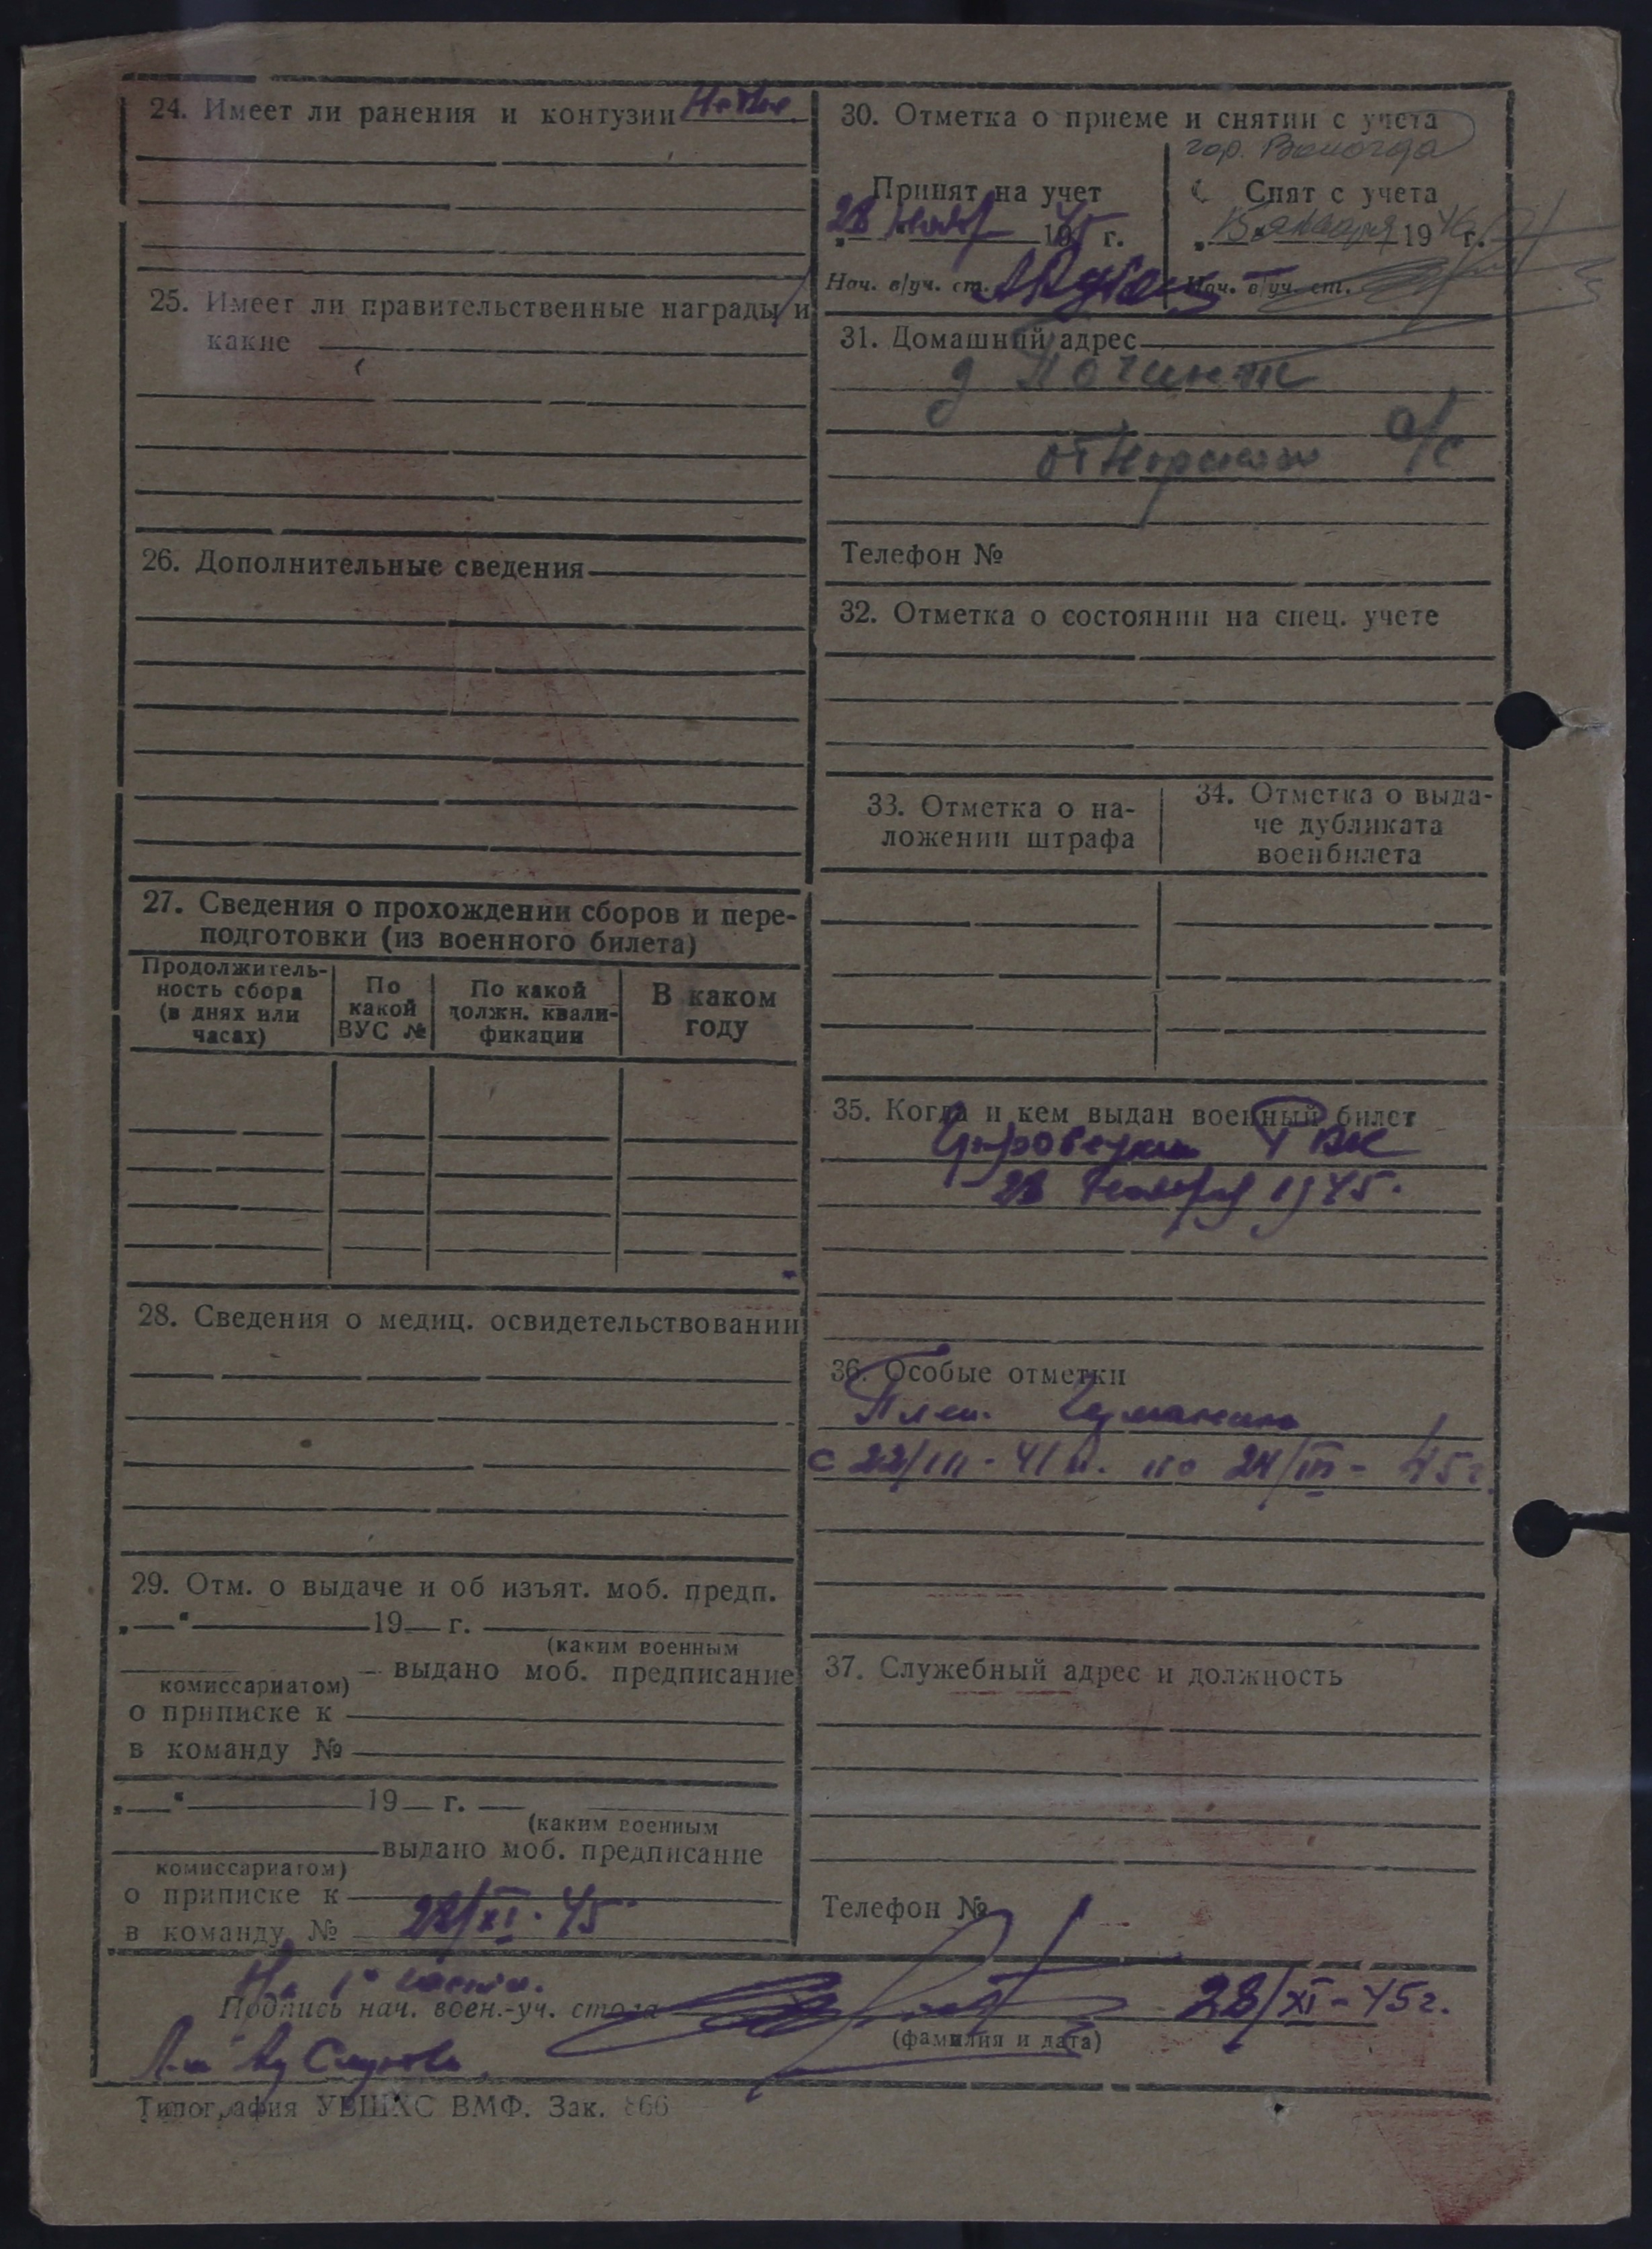 24. Имеет ли ранения и контузии
25. Имеет ли правительственные награды и
какие
26. Дополнительные сведения
27. Сведения о прохождении сборов и пере-
подготовки (из военного билета)
Продолжитель-
ность сбора
(в днях или
часах)
По
какой
ВУС №
По какой
должн. квали-
фикации
В каком
году
28. Сведения о медиц. освидетельствовании
29. Отм. о выдаче и об изъят. моб. предп.
„—“ 19— г.
(каким военным
выдано моб. предписание
комиссариатом)
о приписке к
в команду №
„—“ 19— г.
(каким военным
выдано моб. предписание
комиссариатом)
о приписке к
в команду № 28/XI-45
30. Отметка о приеме и снятии с учета
гор. Вологда
Принят на учет
28 нояб 1945 г.
Нач. в/уч. ст.
Снят с учета
„15 января 1946 г.
Нач. в/уч. ст.
31. Домашний адрес
д Починок
с/с
Телефон №
32. Отметка о состоянии на спец. учете
33. Отметка о на-
ложении штрафа
34. Отметка о выда-
че дубликата
военбилета
35. Когда и кем выдан военный билет
РВК
28 ноября 1945.
36. Особые отметки
Плен. Германии
с 22/III-41 по 24/III-45г.
37. Служебный адрес и должность
Телефон №
На 1
Подпись нач. воен.-уч. стола 28/XI-45г.
(фамилия и дата)
Типография УВШХС ВМФ. Зак. 866